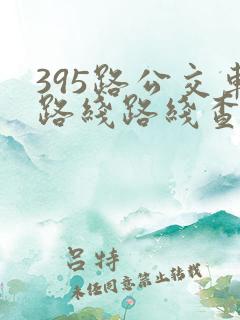 395路公交车
路线路线查
吕特
未经同意禁止转载